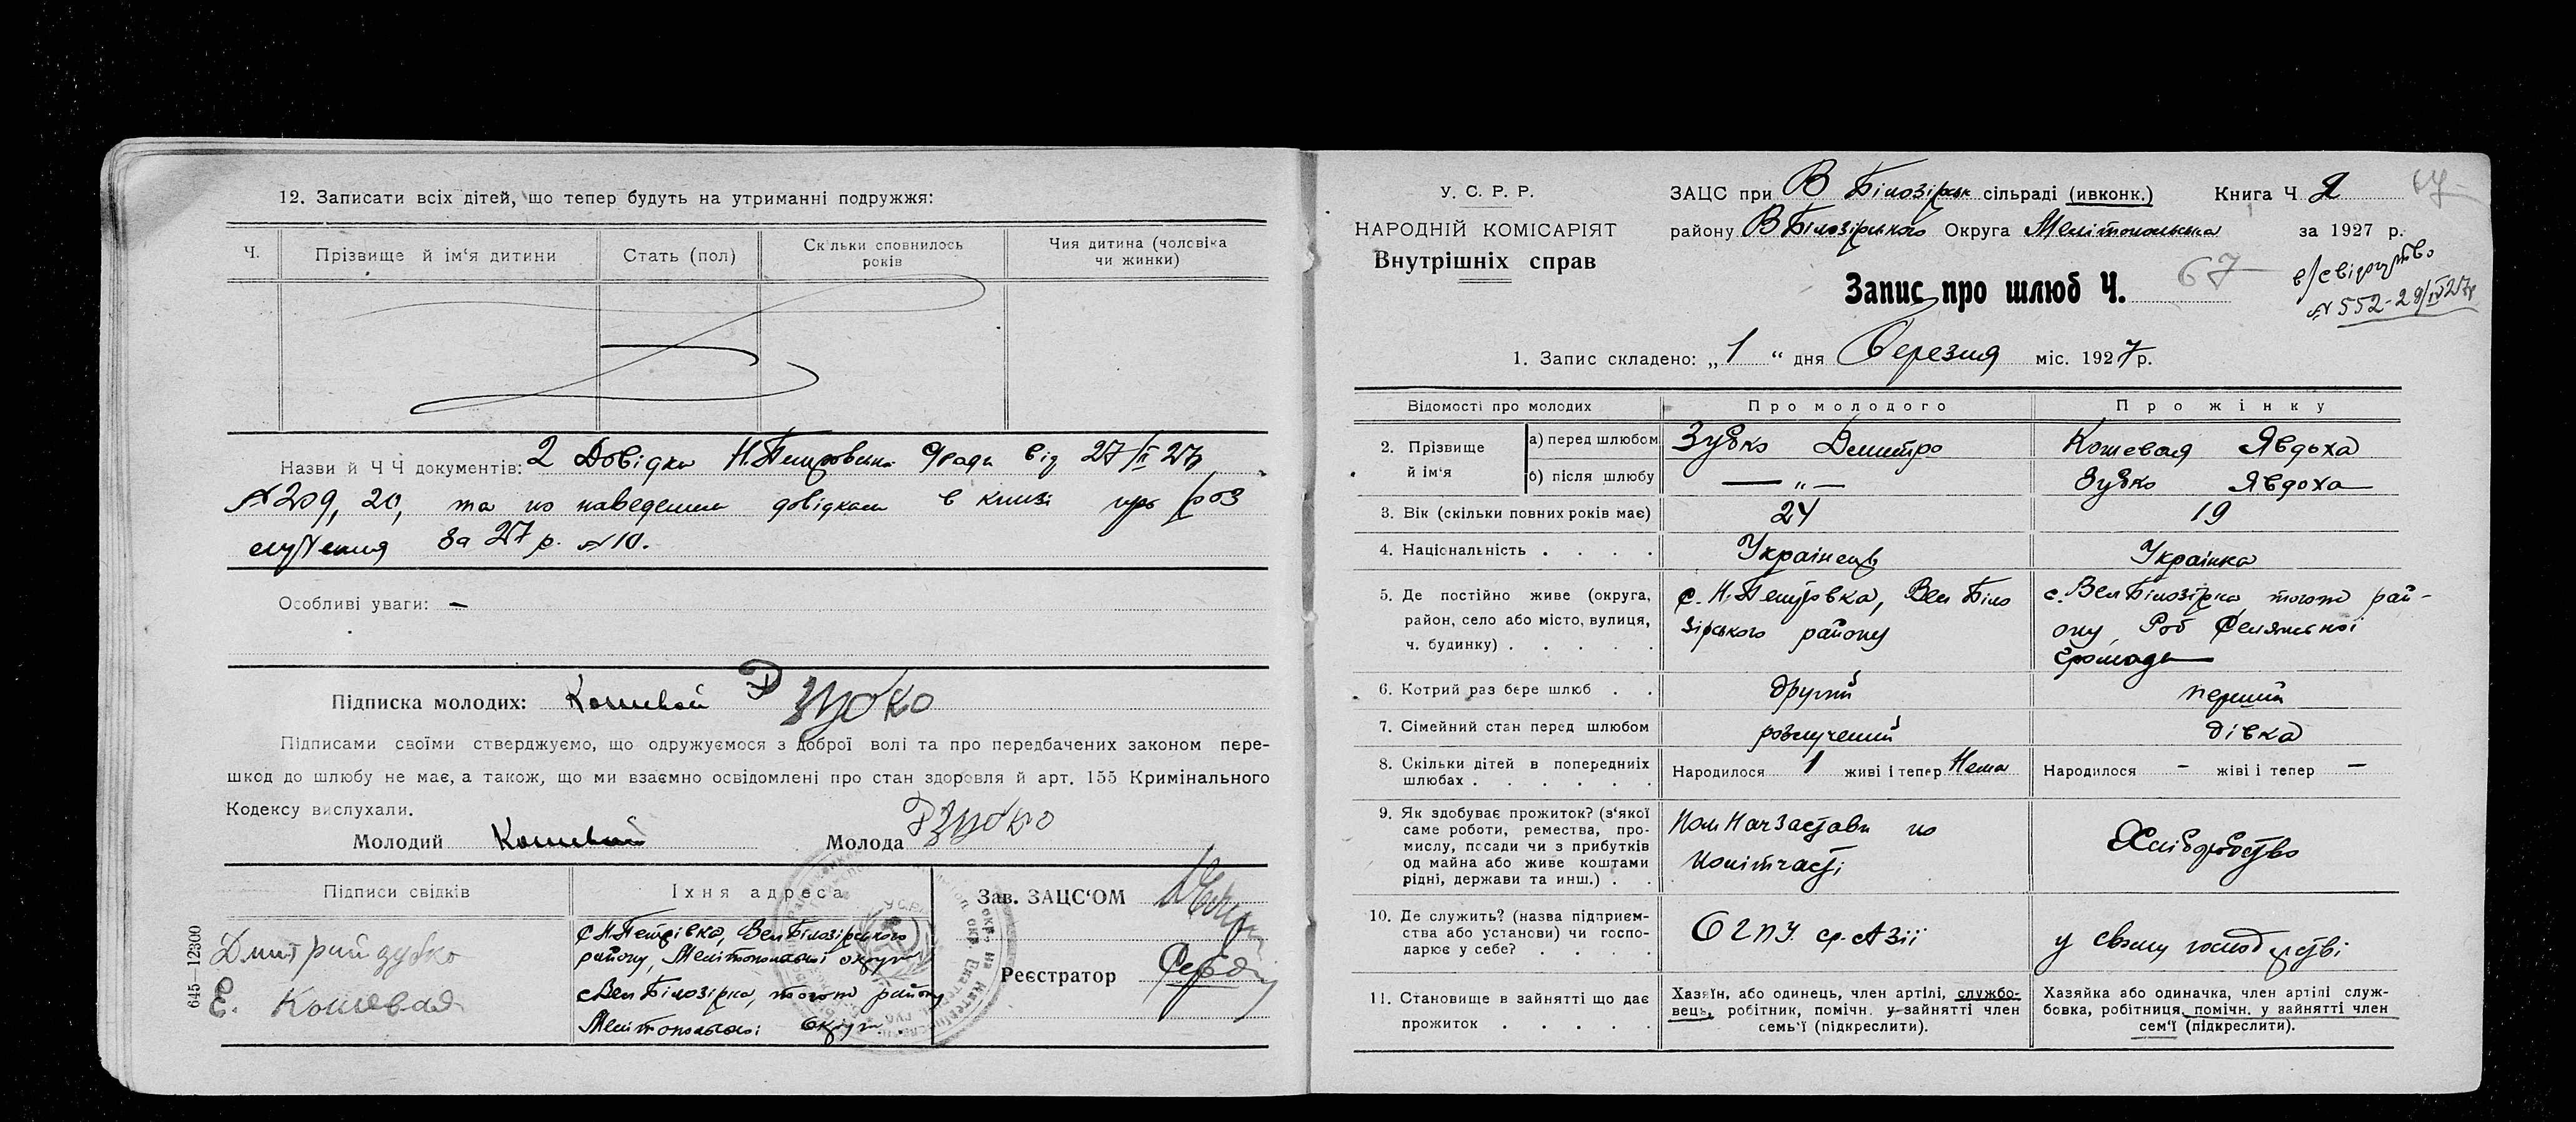 12. Записати всіх дітей, що тепер будуть на утриманні подружжя:
Ч.
Прізвище й ім'я дитини
Стать (пол)
Скільки сповнилось
років
Чия дитина (чоловіка
чи жинки)
Назви й Ч Ч документів: 2 Довідки Н.Петровської від 27/II 27р
№209, 20, та по наведеним довідкам в книзі про роз
лучення за 27 р. №10.
Особливі уваги: —
Підписка молодих: Кошевой Д Зубко
Підписами своїми стверджуємо, що одружуємося з доброї волі та про передбачених законом пере-
шкод до шлюбу не має, а також, що ми взаємно освідомлені про стан здоровля й арт. 155 Кримінального
Кодексу вислухали.
Молодий Кошевой Молода Зубко
Підписи свідків
Їхня адреса
Дмитрий Зубко
Е. Кошевая
с Н.Петрівка, Вел Білозірського
району, Мелітопольської округи
с Вел Білозірка, того ж району
Мелітопольської округи.
Зав. ЗАЦС'ОМ
Реєстратор
645—12300
У. С. Р. Р.
НАРОДНІЙ КОМІСАРІЯТ
Внутрішніх справ
ЗАЦС при В Білозірськ сільраді (ивконк.) Книга Ч 67
району В Білозірського Округа Мелітопольська за 1927 р.
Запис про шлюб Ч. 67
в/свідоцтво
№ 552-29/IV 27р
1. Запис складено: „1“ дня Березня міс. 1927 р.
Відомості про молодих
Про молодого
Про жінку
2. Прізвище
й ім'я
а) перед шлюбом
Зубко Дмитро
Кошевая Явдоха
б) після шлюбу
— „ —
Зубко Явдоха
3. Вік (скільки повних років має)
24
19
4. Національність . . . .
Українець
Українка
5. Де постійно живе (округа,
район, село або місто, вулиця,
ч. будинку) . . . . .
с. Н.Петровка, Вел Біло
зірського району
с. Вел Білозірка того ж рай-
ону, Роб Селянської
громади
6. Котрий раз бере шлюб . .
другий
перший
7. Сімейний стан перед шлюбом
розлучений
дівка
8. Скільки дітей в попередниіх
шлюбах . . . . . .
Народилося 1 живі і тепер Нема
Народилося - живі і тепер —
9. Як здобуває прожиток? (з'якої
саме роботи, ремества, про-
мислу, посади чи з прибутків
од майна або живе коштами
рідні, держави та инш.) . .
Пом Нач Застави по
Політчасті
Хліборобство
10. Де служить? (назва підприєм-
ства або установи) чи госпо-
дарює у себе? . . . .
ОГПУ ср. Азії
у свому господарстві
11. Становище в зайнятті що дає
прожиток . . . . .
Хазяїн, або одинець, член артілі, службо-
вець, робітник, помічн. у зайнятті член
семь'ї (підкреслити).
Хазяйка або одиначка, член артілі служ-
бовка, робітниця, помічн. у зайнятті член
сем'ї (підкреслити).